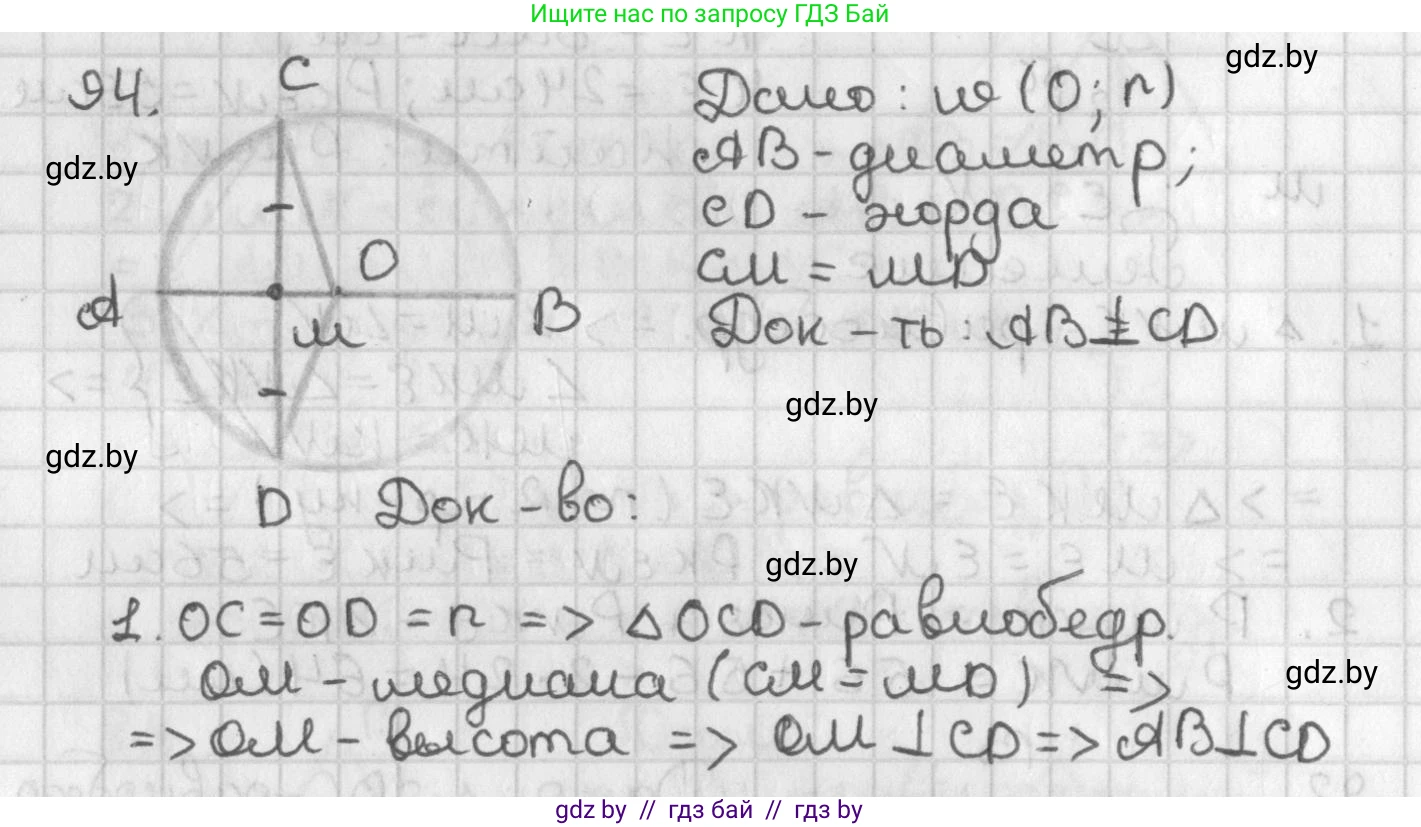 Ищите нас по запросу ГДЗ Бай
gdz.by
94.
C
Дано: ω (O; r)
gdz.by
AB - диаметр;
CD - хорда
O
CM = MD
A
M
B
Док - ть: AB ⊥ CD
gdz.by
gdz.by
D
Док - во:
gdz.by
1. OC = OD = r => △ OCD - равнобедр.
OM - медиана (CM = MD) =>
gdz.by
=> OM - высота => OM ⊥ CD => AB ⊥ CD
gdz by // гдз бай // гдз by